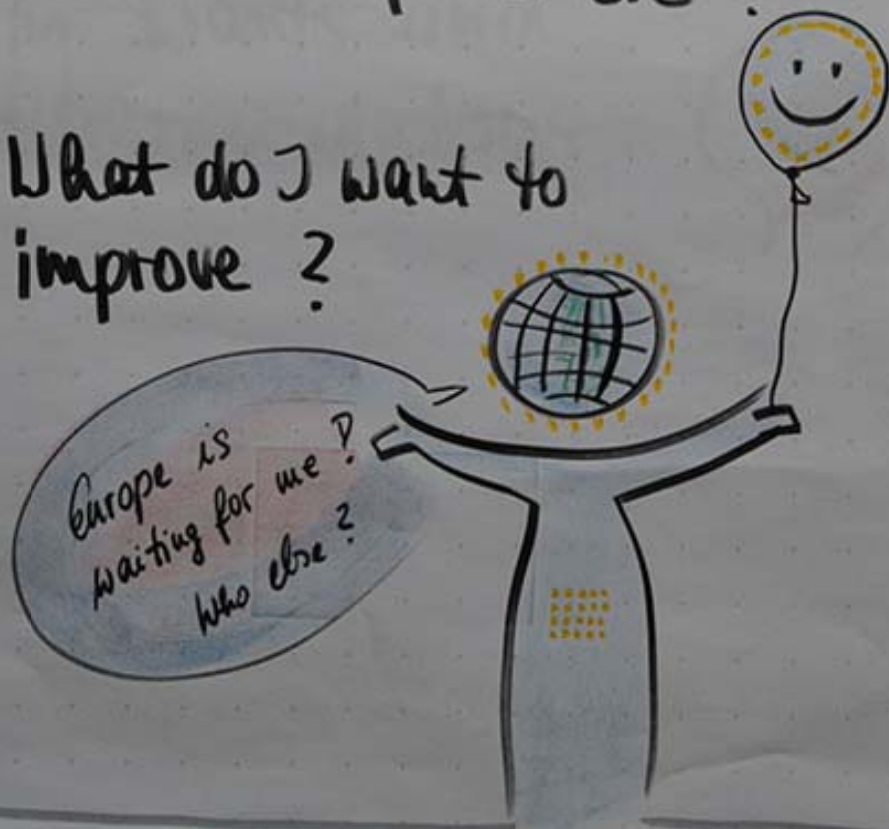 What do I want to
improve ?
Europe is
waiting for me !
who else ?